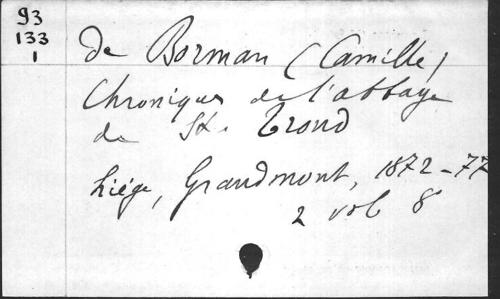 93
133
1
de Borman (Camille)
Chronique de l'abbaye
de St. Trond
Liége, Grandmont, 1872-77
2 vol 8°